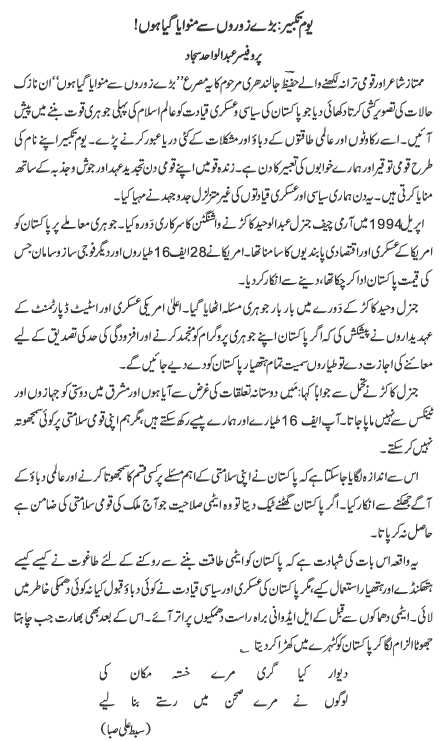 یومِ تکبیر: بڑے زوروں سے منوایا گیا ہوں!
پروفیسر عبدالواحد سجاد
ممتاز شاعر اور قومی ترانہ لکھنے والے حفیظؔ جالندھری مرحوم کا یہ مصرع ’’بڑے زوروں سے منوایا گیا ہوں‘‘ ان نازک
حالات کی تصویر کشی کرتا دکھائی دیا جو پاکستان کی سیاسی و عسکری قیادت کو عالم اسلام کی پہلی جوہری قوت بننے میں پیش
آئیں۔ اسے رکاوٹوں اور عالمی طاقتوں کے دباؤ اور مشکلات کے کئی دریا عبور کرنے پڑے۔ یوم تکبیر اپنے نام کی
طرح قومی توقیر اور ہمارے خوابوں کی تعبیر کا دن ہے۔ زندہ قومیں اپنے قومی دن تجدید عہد اور جوش و جذبہ کے ساتھ
منایا کرتی ہیں۔ یہ دن ہماری سیاسی اور عسکری قیادتوں کی غیر متزلزل جدوجہد نے مہیا کیا۔
اپریل 1994 میں آرمی چیف جنرل عبدالوحید کاکڑ نے واشنگٹن کا سرکاری دَورہ کیا۔ جوہری معاملے پر پاکستان کو
امریکا کے عسکری اور اقتصادی پابندیوں کا سامنا تھا۔ امریکا نے 28 ایف 16 طیاروں اور دیگر فوجی ساز و سامان جس
کی قیمت پاکستان ادا کر چکا تھا، دینے سے انکار کر دیا۔
جنرل وحید کاکڑ کے دَورے میں بار بار جوہری مسئلہ اٹھایا گیا۔ اعلیٰ امریکی عسکری اور اسٹیٹ ڈپارٹمنٹ کے
عہدیداروں نے پیشکش کی کہ اگر پاکستان اپنے جوہری پروگرام کو منجمد کرنے اور افزودگی کی حد کی تصدیق کے لیے
معائنے کی اجازت دے تو طیاروں سمیت تمام ہتھیار پاکستان کو دے دیے جائیں گے۔
جنرل کاکڑ نے تحمل سے جواباً کہا: میَں دوستانہ تعلقات کی غرض سے آیا ہوں اور مشرق میں دوستی کو جہازوں اور
ٹینکس سے نہیں ماپا جاتا۔ آپ ایف 16 طیارے اور ہمارے پیسے رکھ سکتے ہیں، مگر ہم اپنی قومی سلامتی پر کوئی سمجھوتہ
نہیں کر سکتے۔
اس سے اندازہ لگایا جا سکتا ہے کہ پاکستان نے اپنی سلامتی کے اہم مسئلے پر کسی قسم کا سمجھوتا کرنے اور عالمی دباؤ کے
آگے جھکنے سے انکار کیا۔ اگر پاکستان گھٹنے ٹیک دیتا تو وہ ایٹمی صلاحیت جو آج ملک کی قومی سلامتی کی ضامن ہے
حاصل نہ کر پاتا۔
یہ واقعہ اس بات کی شہادت ہے کہ پاکستان کو ایٹمی طاقت بننے سے روکنے کے لئے طاغوت نے کیسے کیسے
ہتھکنڈے اور ہتھیار استعمال کیے، مگر پاکستان کی عسکری اور سیاسی قیادت نے کوئی دباؤ قبول کیا نہ کوئی دھمکی خاطر میں
لائی۔ ایٹمی دھماکوں سے قبل کے ایل ایڈوانی براہ راست دھمکیوں پر اتر آئے۔ اس کے بعد بھی بھارت جب چاہتا
جھوٹا الزام لگا کر پاکستان کو کٹہرے میں کھڑا کر دیتا ؎
دیوار کیا گری مرے خستہ مکان کی
لوگوں نے مرے صحن میں رستے بنا لیے
(سبط علی صبا)